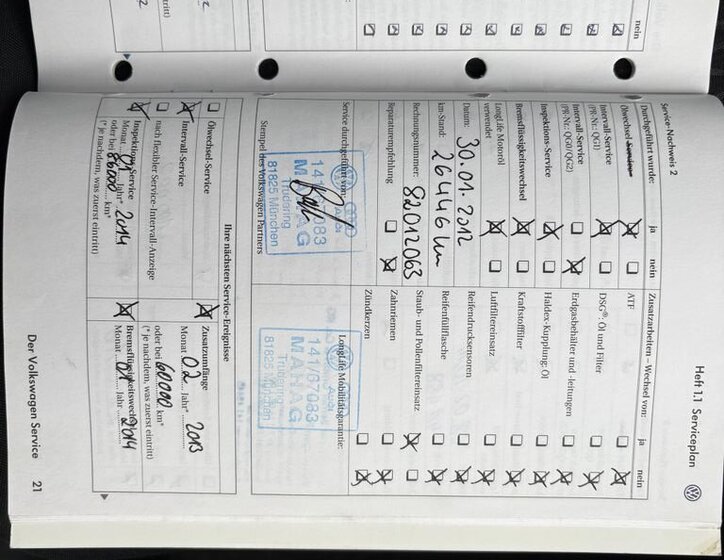 nein
Heft 1.1 Serviceplan
Service-Nachweis 2
Durchgeführt wurde: ja nein
Ölwechsel-Service
Intervall-Service
(PR-Nr.: QG1)
Intervall-Service
(PR-Nr.: QG0/QG2)
Inspektions-Service
Bremsflüssigkeitswechsel
LongLife Motoröl
verwendet
Datum: 30.01.2012
km-Stand: 26446 km
Rechnungsnummer: 82012063
Reparaturempfehlung
Service durchgeführt von:
141/67083
MAHAG
Trudering
81825 München
Stempel des Volkswagen Partners
Zusatzarbeiten – Wechsel von: ja nein
ATF
DSG®: Öl und Filter
Erdgasbehälter und -leitungen
Haldex-Kupplung: Öl
Kraftstofffilter
Luftfiltereinsatz
Reifendrucksensoren
Reifenfüllflasche
Staub- und Pollenfiltereinsatz
Zahnriemen
Zündkerzen
LongLife Mobilitätsgarantie:
Audi
141/67083
MAHAG
Trudering
81825 München
Ihre nächsten Service-Ereignisse
Ölwechsel-Service
Intervall-Service
nach flexibler Service-Intervall-Anzeige
Inspektions-Service
Monat 01 Jahr* 2014
oder bei 86000 km*
(* je nachdem, was zuerst eintritt)
Zusatzumfänge
Monat 02 Jahr* 2013
oder bei 60000 km*
(* je nachdem, was zuerst eintritt)
Bremsflüssigkeitswechsel
Monat 01 Jahr 2014
Der Volkswagen Service 21